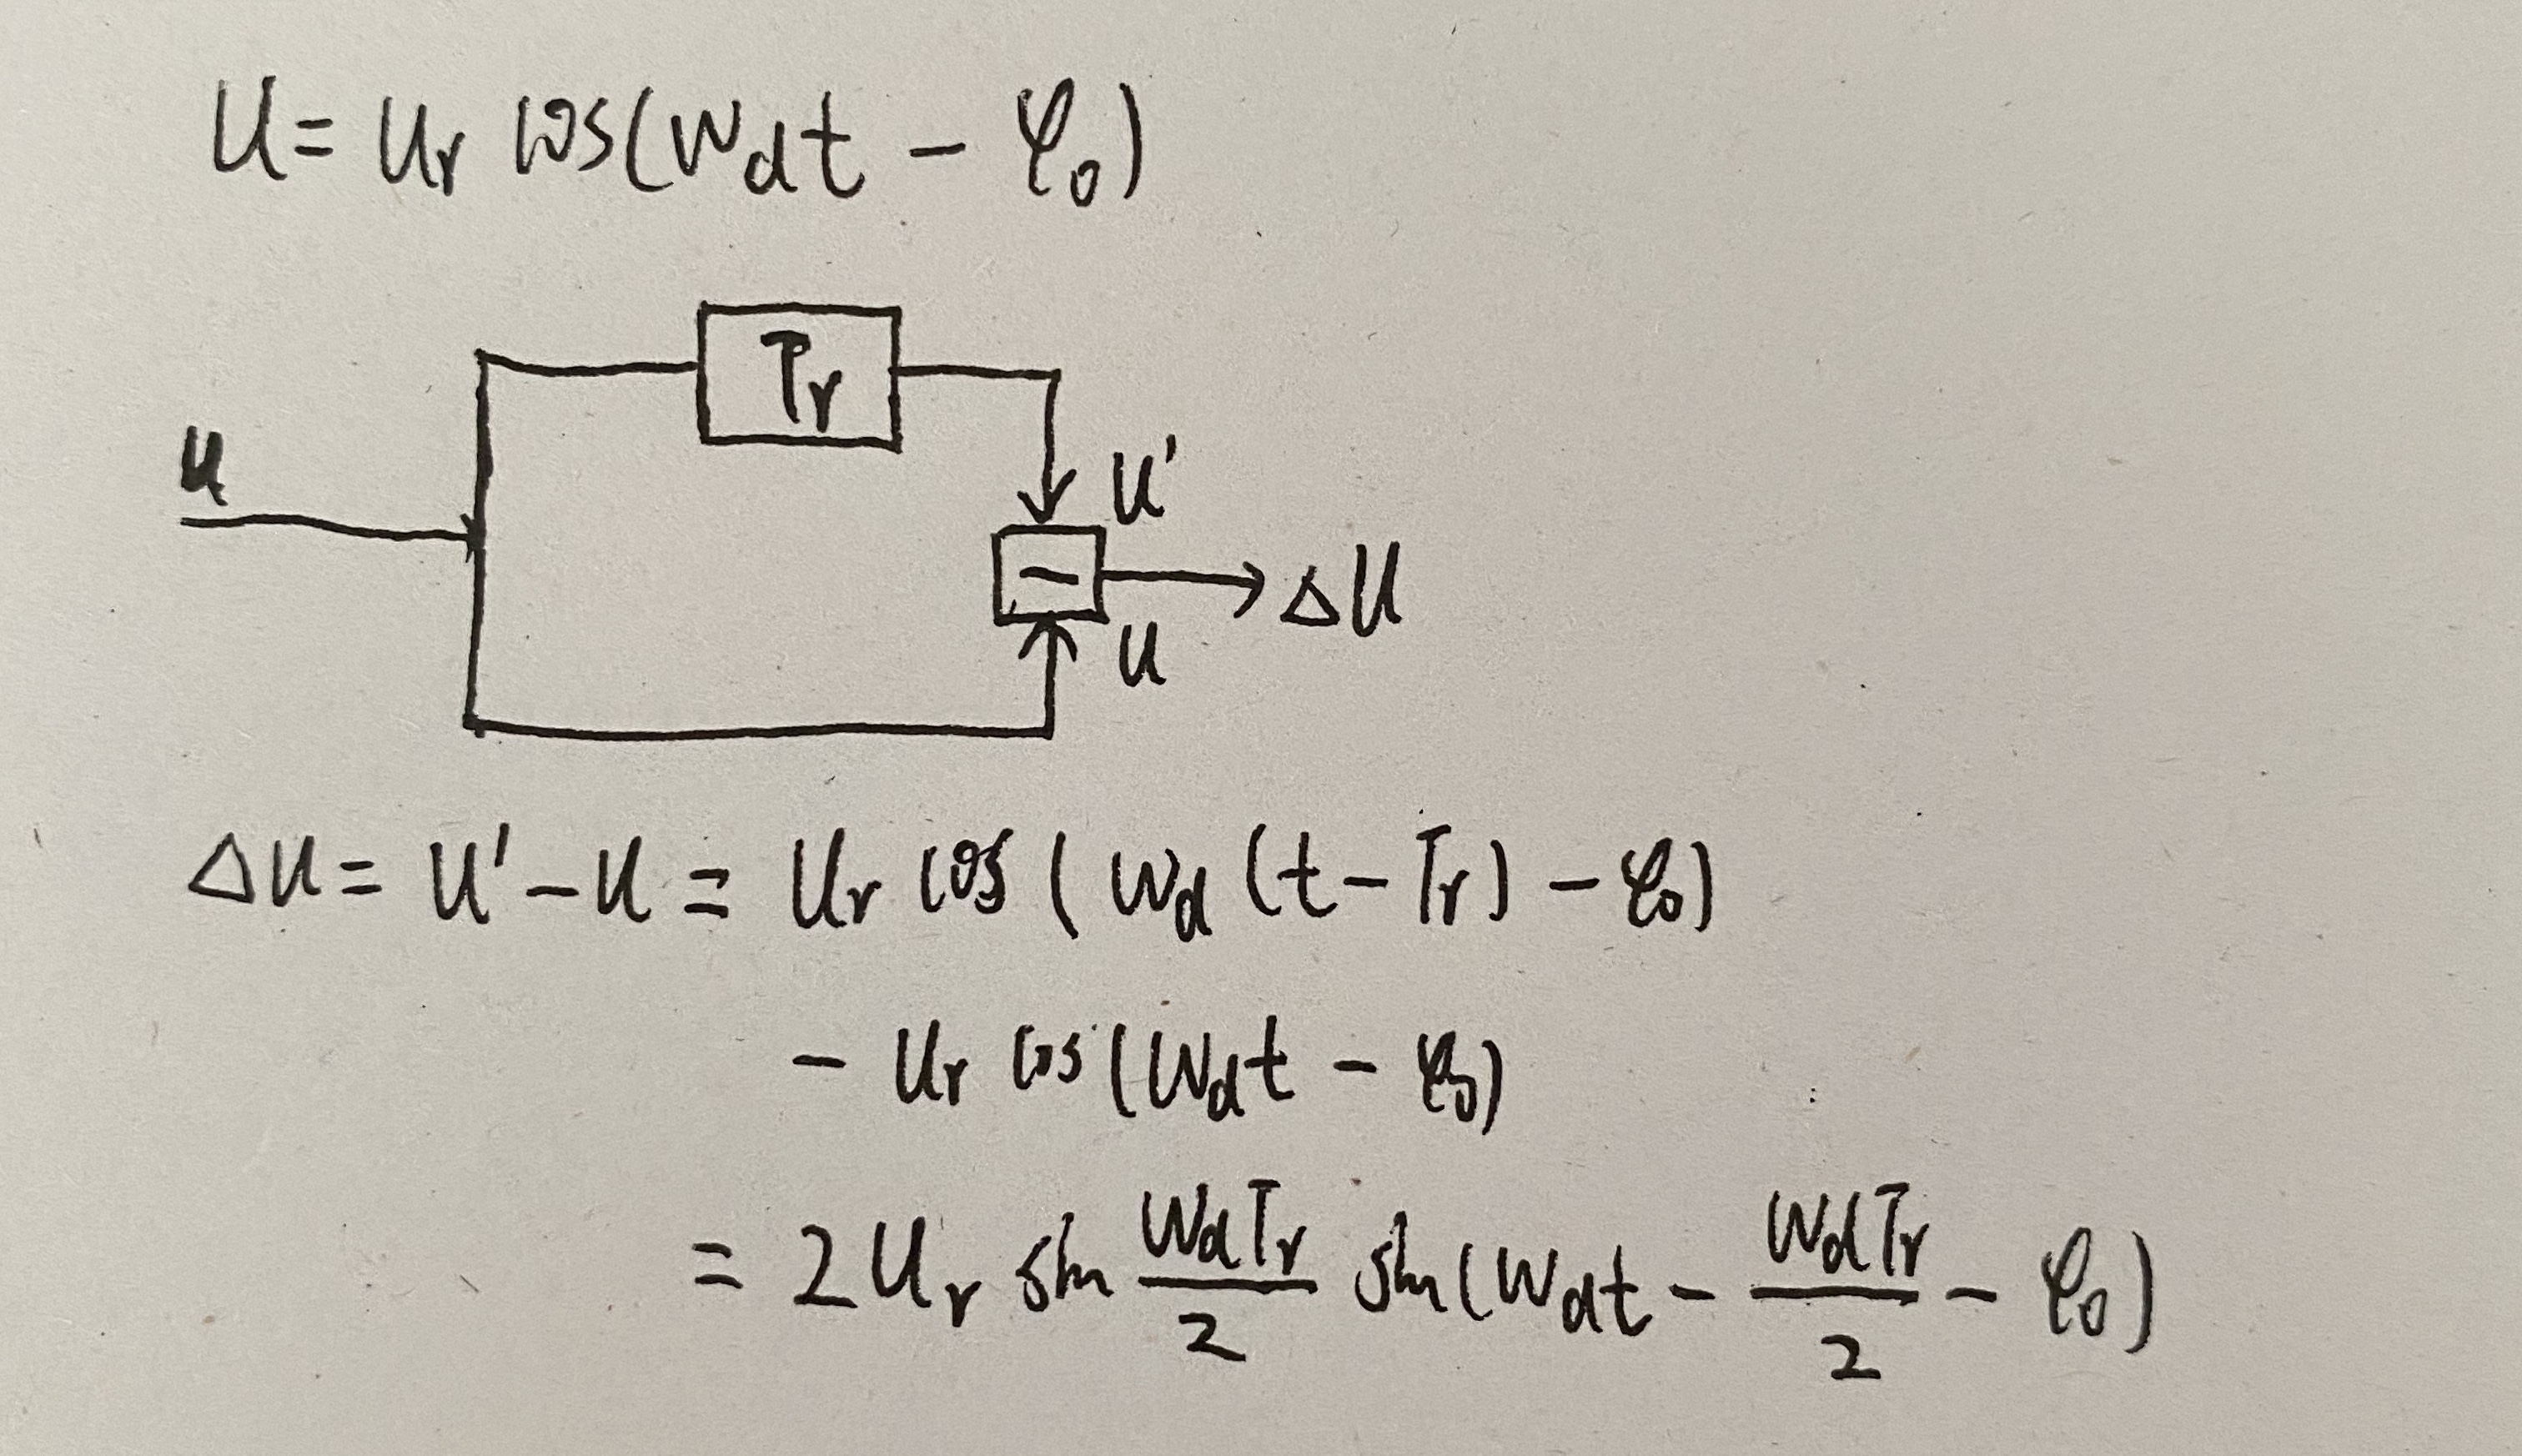 U = Ur cos(ωdt − φ0)
Tr
u
U'
ΔU
U
Δu = U' − U = Ur cos(ωd(t − Tr) − φ0)
− Ur cos(ωdt − φ0)
= 2Ur sin ωdTr/2 sin(ωdt − ωdTr/2 − φ0)